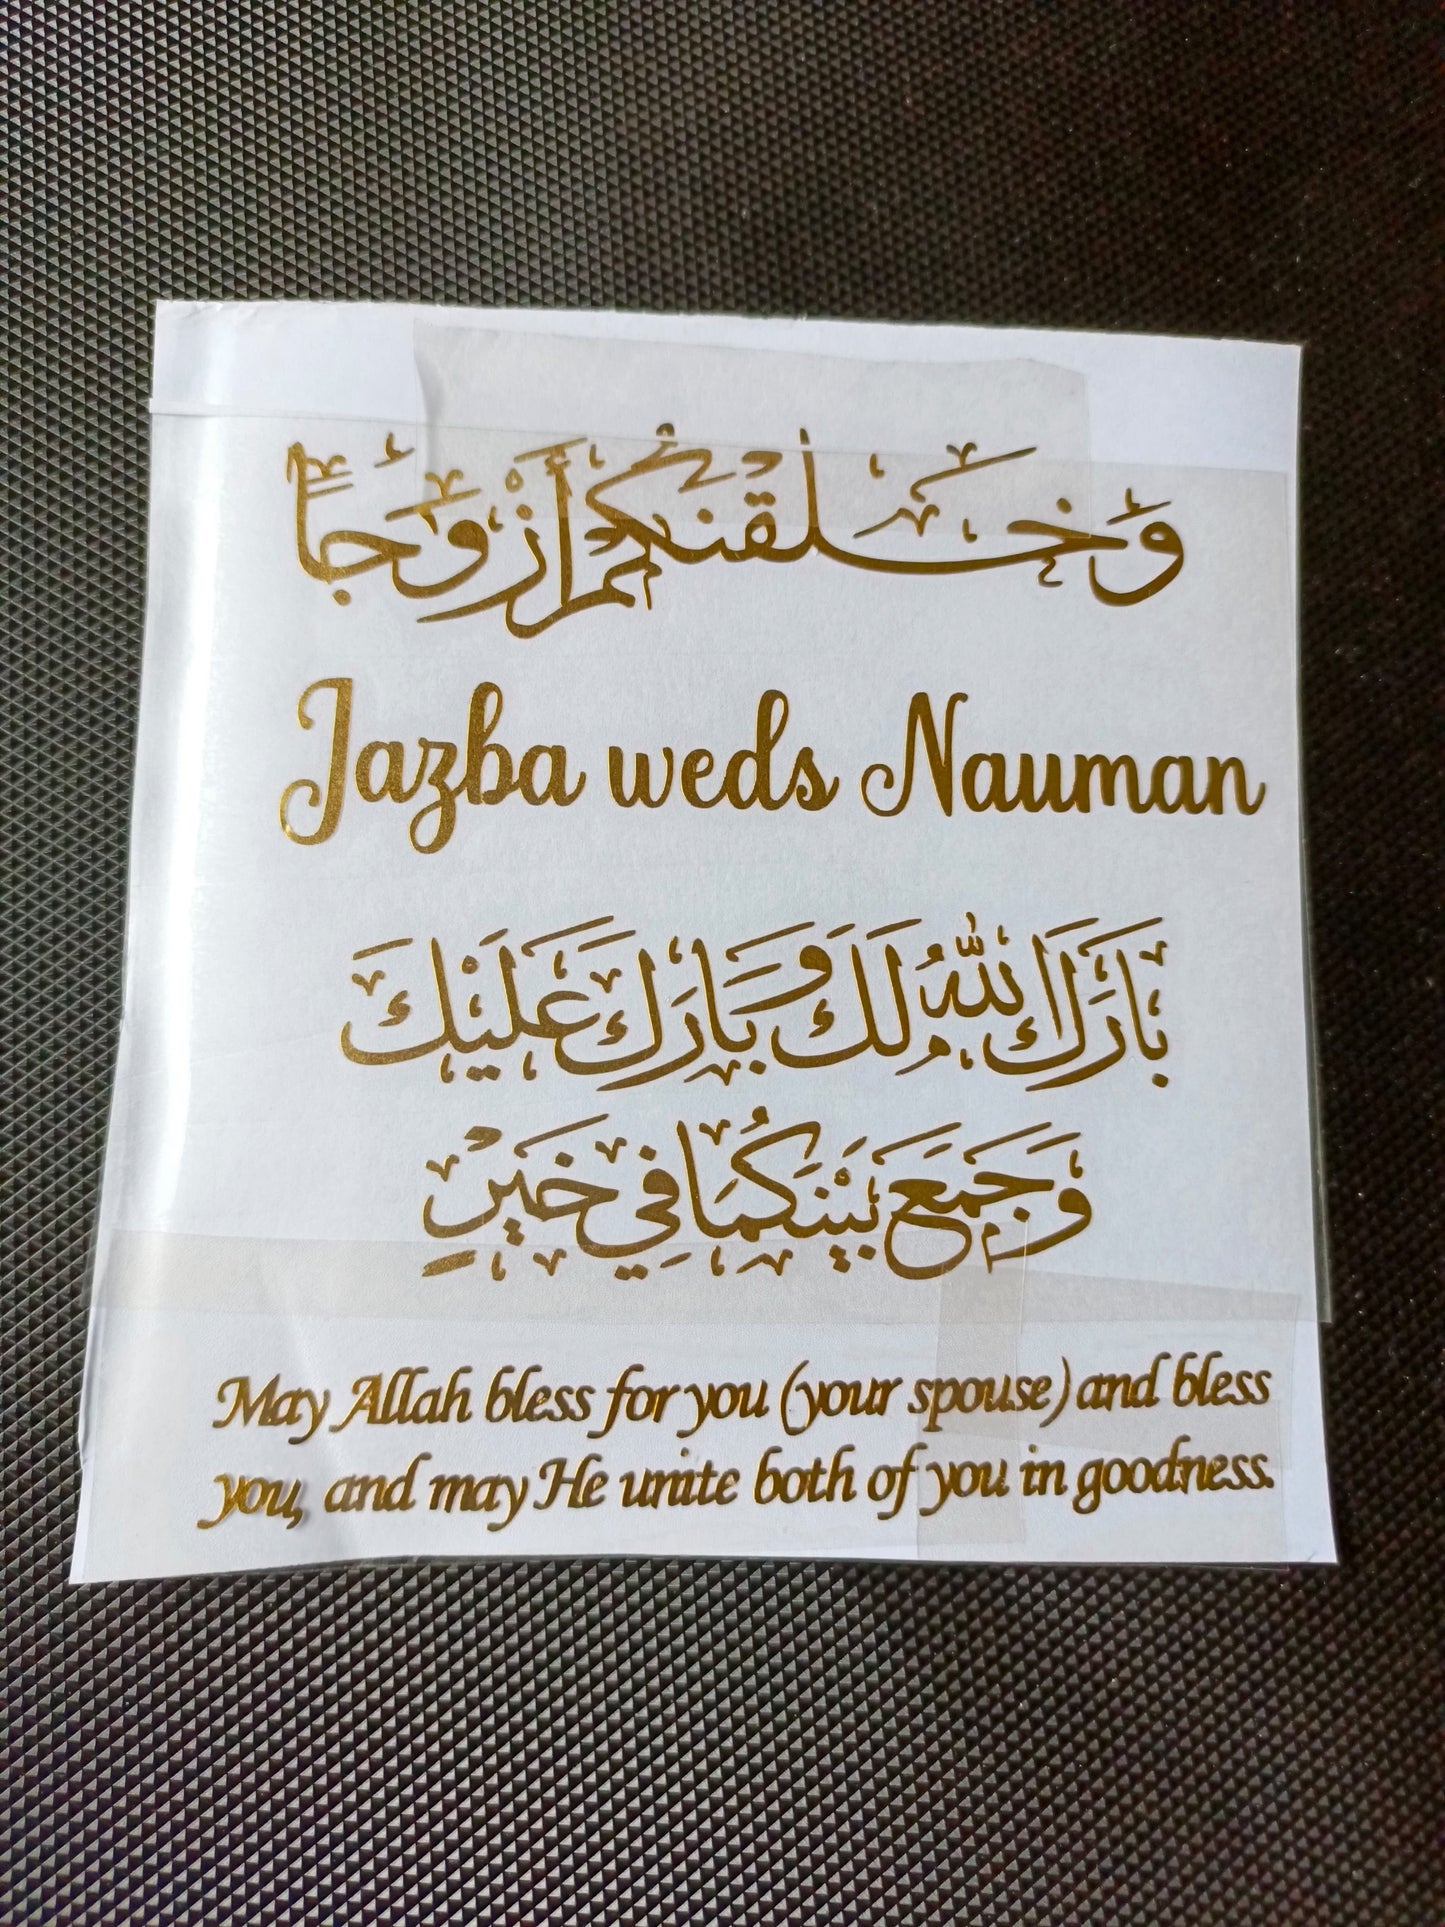 وَخَلَقْنَكُمْ أَزْوَجًا
Jazba weds Nauman
بَارَكَ اللهُ لَكَ وَبَارَكَ عَلَيْكَ
وَجَمَعَ بَيْنَكُمَا فِي خَيْرٍ
May Allah bless for you (your spouse) and bless
you, and may He unite both of you in goodness.